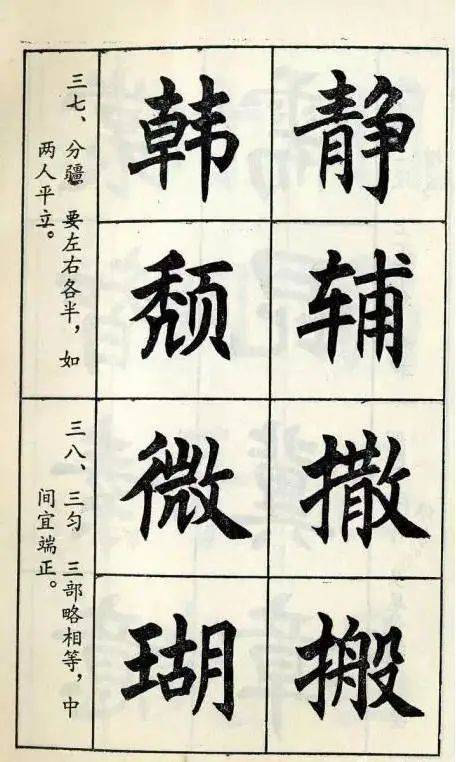 静
辅
韩
颓
三七、分疆 要左右各半，如
两人平立。
撒
搬
微
瑚
三八、三匀 三部略相等，中
间宜端正。